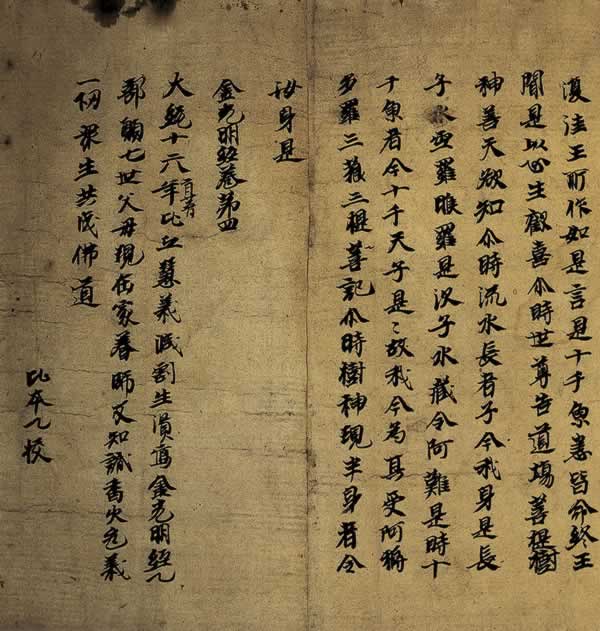 復法王所作如是言是十千魚悉皆命終王
聞是以心生歡喜尒時世尊告道場菩提樹
神善天欲知尒時流水長者子今我身是長
子水空羅睺羅是次子水藏今阿難是時十
千魚者今十千天子是〻故我今為其受阿耨
多羅三藐三提菩記尒時樹神現半身者今
汝身是
金光明經卷第四
大統十六年比丘慧義減割生資寫金光明經一
部願七世父母現在家眷師友知識香火邑義
一切衆生共成佛道
比本一校